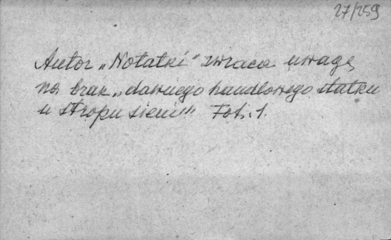 27/259
Autor „Notatki" zwraca uwagę
na brak „dawnego handlowego statku
u stropu sieni" Fot. 1.